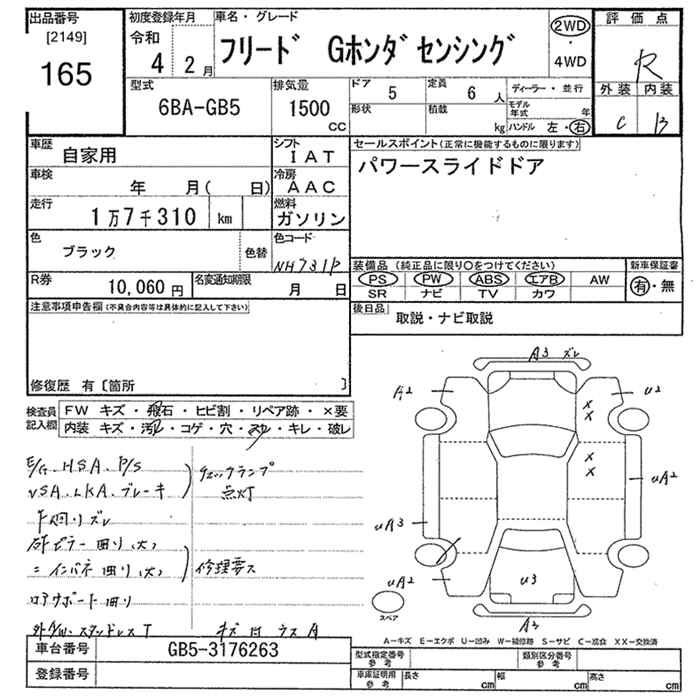 出品番号
[2149]
165
初度登録年月
令和
4 2月
車名・グレード
フリード Gホンダセンシング
2WD
・
4WD
評価点
R
外装 内装
C B
型式
6BA-GB5
排気量
1500
CC
ドア 5
形状
定員 6 人
積載 kg
ディーラー・並行
モデル年式 年
ハンドル 左・右
車歴
自家用
シフト
IAT
車検
年 月( 日)
冷房
AAC
走行
1万7千310 km
燃料
ガソリン
色
ブラック
色替
色コード
NH731P
R券
10,060 円
名変通知期限
月 日
セールスポイント(正常に機能するものに限ります)
パワースライドドア
装備品(純正品に限り○をつけてください)
PS PW ABS エアB AW
SR ナビ TV カワ
新車保証書
有・無
後日品
取説・ナビ取説
注意事項申告欄(不具合内容等は具体的に記入して下さい)
修復歴 有〔箇所 〕
検査員
記入欄
FW キズ・飛石・ヒビ割・リペア跡・×要
内装 キズ・汚レ・コゲ・穴・スレ・キレ・破レ
E/G.HSA.P/S
VSA.LKA.ブレーキ
チェックランプ
点灯
下回りズレ
ピラー曲り(大)
インパネ曲り(大)
修理要ス
リアサポート曲り
キズ
A3 ズレ
A2
U2
X
X
X
X
UA2
UA3
UA2
U3
A3
スペア
A-キズ E-エクボ U-凹み W-補修跡 S-サビ C-腐食 XX-交換済
車台番号
GB5-3176263
登録番号
型式指定番号
参考
類別区分番号
参考
車庫証明用
参考
長さ cm
幅 cm
高さ cm